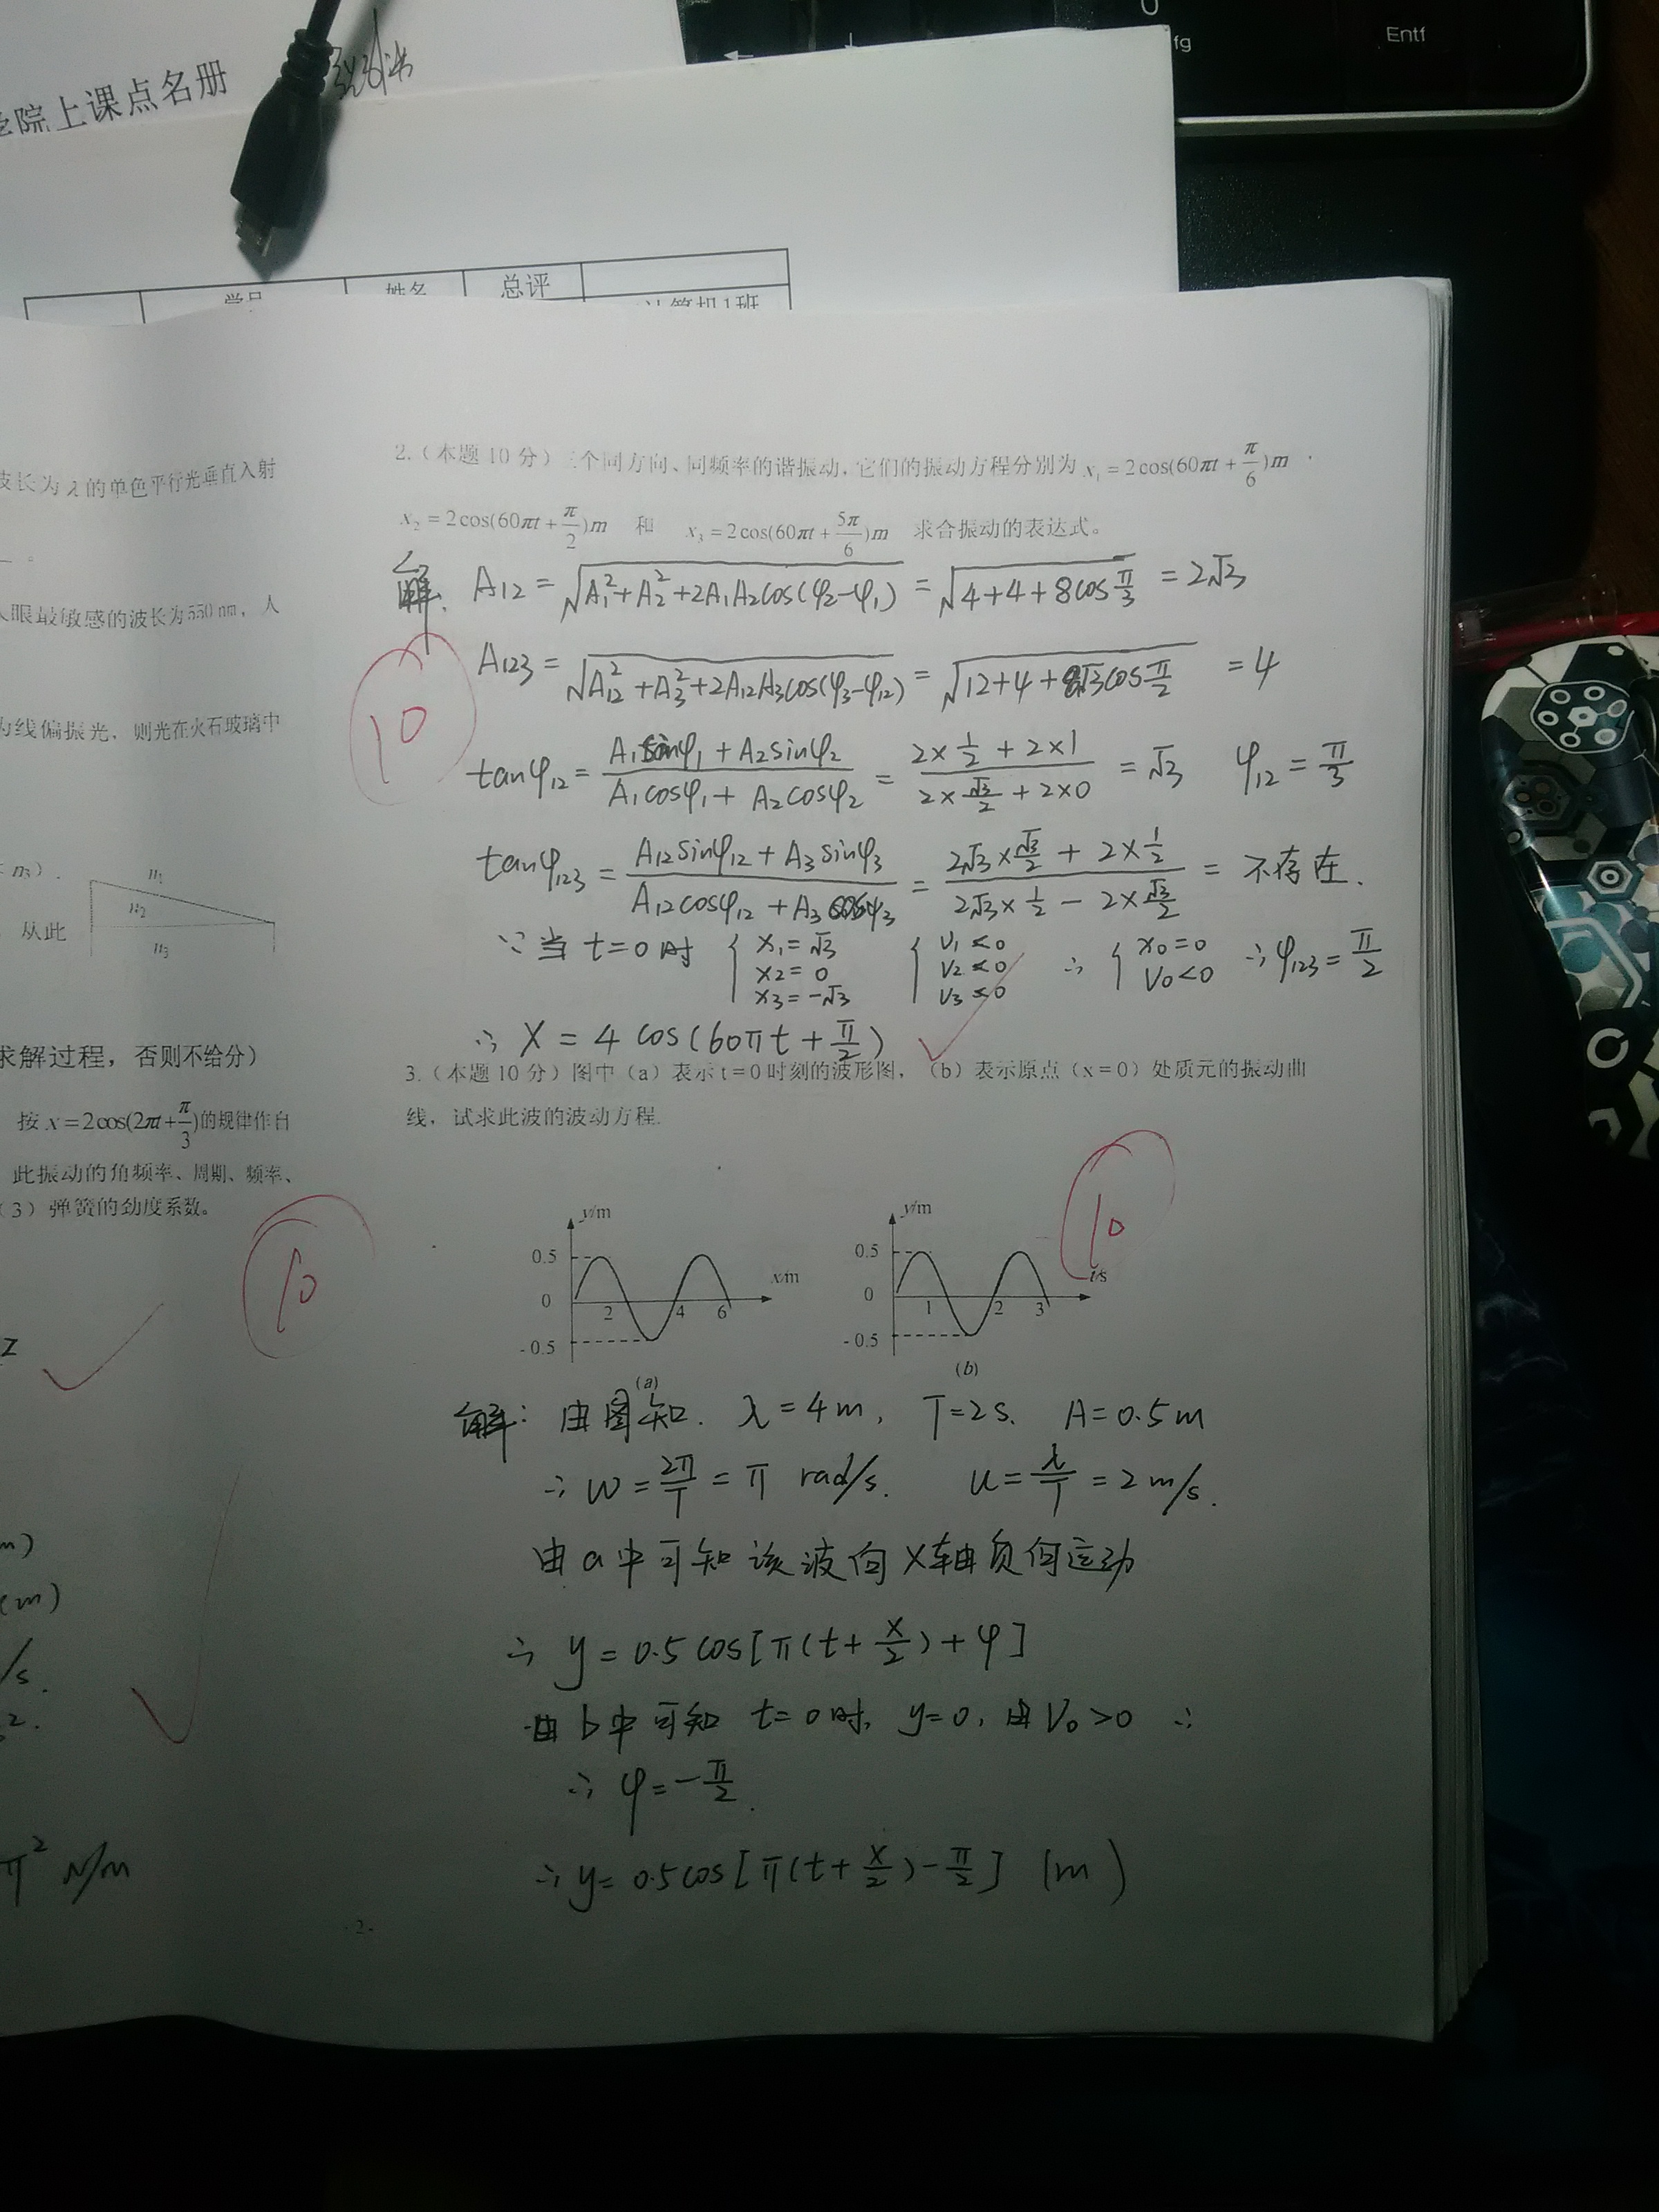 fg
Entf
院上课点名册
学号 姓名 总评
计算机1班
波长为λ的单色平行光垂直入射
人眼最敏感的波长为550nm，人
为线偏振光，则光在火石玻璃中
n₃）.
n₁
n₂
n₃
从此
求解过程，否则不给分）
按x=2cos(2πt+π/3)的规律作自
此振动的角频率、周期、频率、
（3）弹簧的劲度系数。
10
z
m)
(m)
/s.
2.
π² N/m
-2-
2.（本题10分）三个同方向、同频率的谐振动，它们的振动方程分别为 x₁=2cos(60πt+π/6)m
x₂=2cos(60πt+π/2)m 和 x₃=2cos(60πt+5π/6)m 求合振动的表达式。
解. A12=√(A₁²+A₂²+2A₁A₂cos(φ₂-φ₁))=√(4+4+8cosπ/3)=2√3
A123=√(A12²+A₃²+2A12A₃cos(φ₃-φ12))=√(12+4+8√3cosπ/2)=4
10
tanφ12=(A₁sinφ₁+A₂sinφ₂)/(A₁cosφ₁+A₂cosφ₂)=(2×1/2+2×1)/(2×√3/2+2×0)=√3 φ12=π/3
tanφ123=(A12sinφ12+A₃sinφ₃)/(A12cosφ12+A₃cosφ₃)=(2√3×√3/2+2×1/2)/(2√3×1/2-2×√3/2)=不存在.
∵当t=0时 { x₁=√3 x₂=0 x₃=-√3 { v₁<0 v₂<0 v₃<0 ∴ { x₀=0 v₀<0 ∴φ123=π/2
∴ X=4cos(60πt+π/2)
3.（本题10分）图中（a）表示t=0时刻的波形图，（b）表示原点（x=0）处质元的振动曲
线，试求此波的波动方程.
10
y/m
0.5
0
-0.5
2 4 6
x/m
(a)
y/m
0.5
0
-0.5
1 2 3
t/s
(b)
解: 由图知. λ=4m, T=2s. A=0.5m
∴ω=2π/T=π rad/s. u=λ/T=2m/s.
由a中可知该波向X轴负何运动
∴ y=0.5cos[π(t+x/2)+φ]
由b中可知 t=0时, y=0, 由V₀>0 ∴
∴ φ=-π/2.
∴y=0.5cos[π(t+x/2)-π/2] (m)